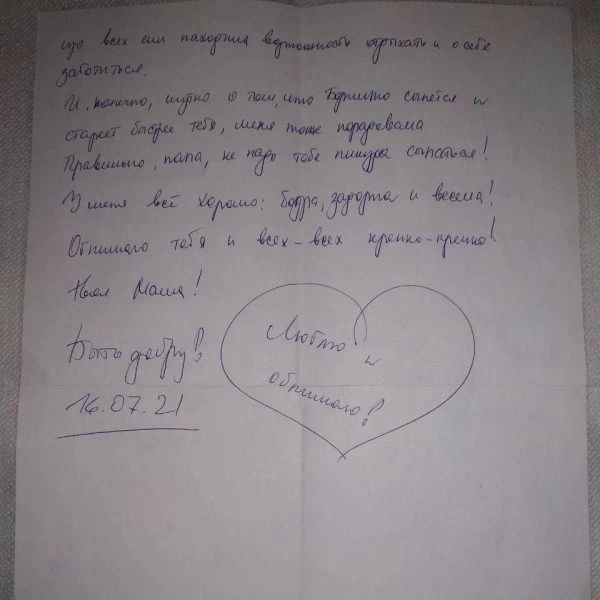 изо всех сил находила возможность отдыхать и о себе
заботиться.
И, конечно, шутка о том, что сыпется и
стареет быстрее тебя, меня тоже порадовала
Правильно, папа, не надо тебе никуда сыпаться!
У меня всё хорошо: бодра, задорна и весела!
Обнимаю тебя и всех-всех крепко-крепко!
Маша!
Быть добру!
16.07.21
Люблю и
обнимаю!